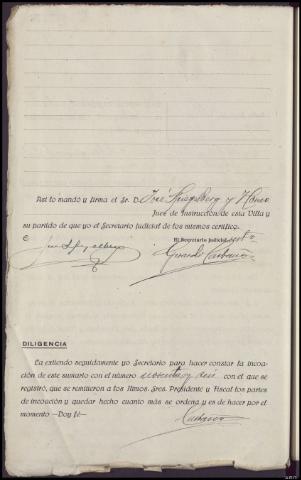 Así lo mandó y firma el Sr. D. José Spiegelberg y Horno
Juez de Instrucción de esta Villa y
su partido de que yo el Secretario judicial de los mismos certifico.
El Secretario Judicial,
José Spiegelberg
DILIGENCIA
La extiendo seguidamente yo Secretario para hacer constar la incoa-
ción de este sumario con el número sesenta y seis con el que se
registró, que se remitieron a los Iltmos. Sres. Presidente y Fiscal los partes
de incoación y quedar hecho cuanto más se ordena y es de hacer por el
momento —Doy fé—